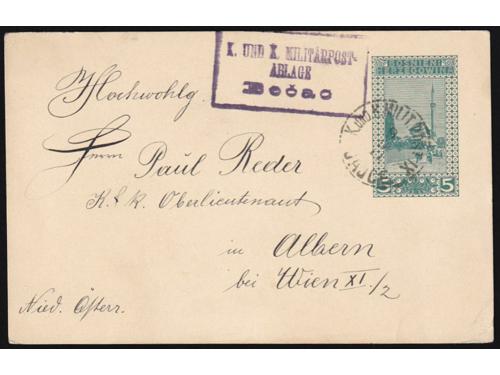 K. UND K. MILITÄRPOST-
ABLAGE
Bečac
BOSNIEN
HERZEGOWINA
5 5
K.UND K. MILIT. POST
JAJCE
Hochwohlg.
Herrn Paul Reder
K. & k. Oberlieutenant
in Albern
bei Wien XI./2
Nied. Österr.